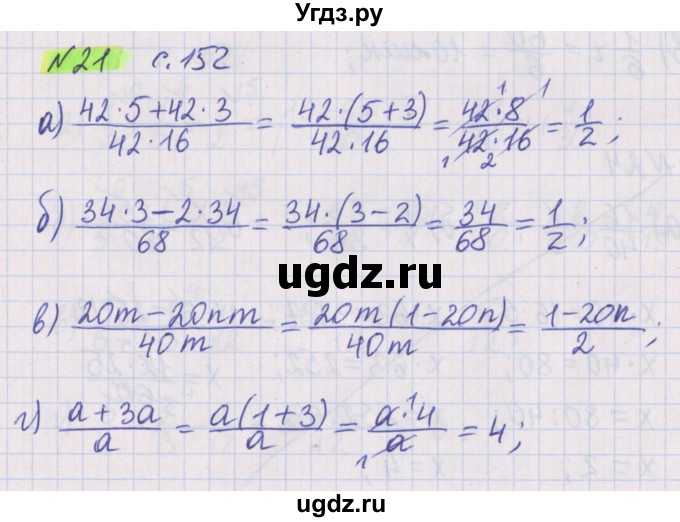 Угдз.ру
№21 с.152
а) (42·5+42·3)/(42·16) = (42·(5+3))/(42·16) = (42·8)/(42·16) = 1/2;
б) (34·3−2·34)/68 = (34·(3−2))/68 = 34/68 = 1/2;
ugdz.ru
в) (20m−20nm)/40m = (20m(1−20n))/40m = (1−20n)/2;
г) (a+3a)/a = (a(1+3))/a = (a·4)/a = 4;
ugdz.ru